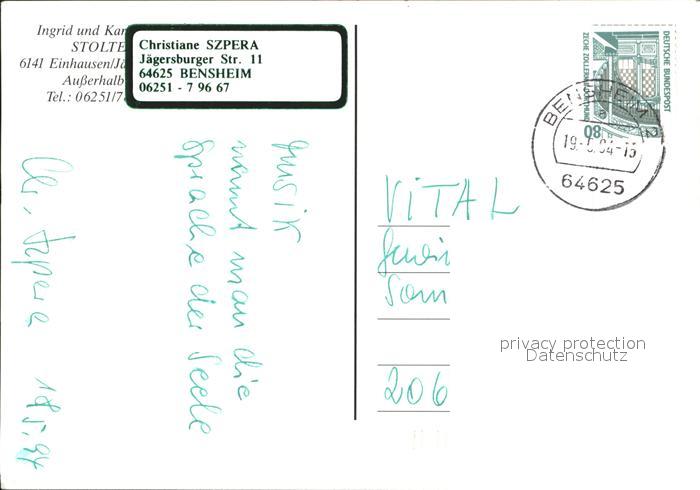 Ingrid und Kar
STOLTE
6141 Einhausen/Jä
Außerhalb
Tel.: 06251/7
Christiane SZPERA
Jägersburger Str. 11
64625 BENSHEIM
06251 - 7 96 67
Musik
nennt man die
Sprache der Seele
Chr. Szpera 18.5.94
DEUTSCHE BUNDESPOST
ZECHE ZOLLERN DORTMUND
80
BENSHEIM 2
64625
VITAL
206
privacy protection
Datenschutz